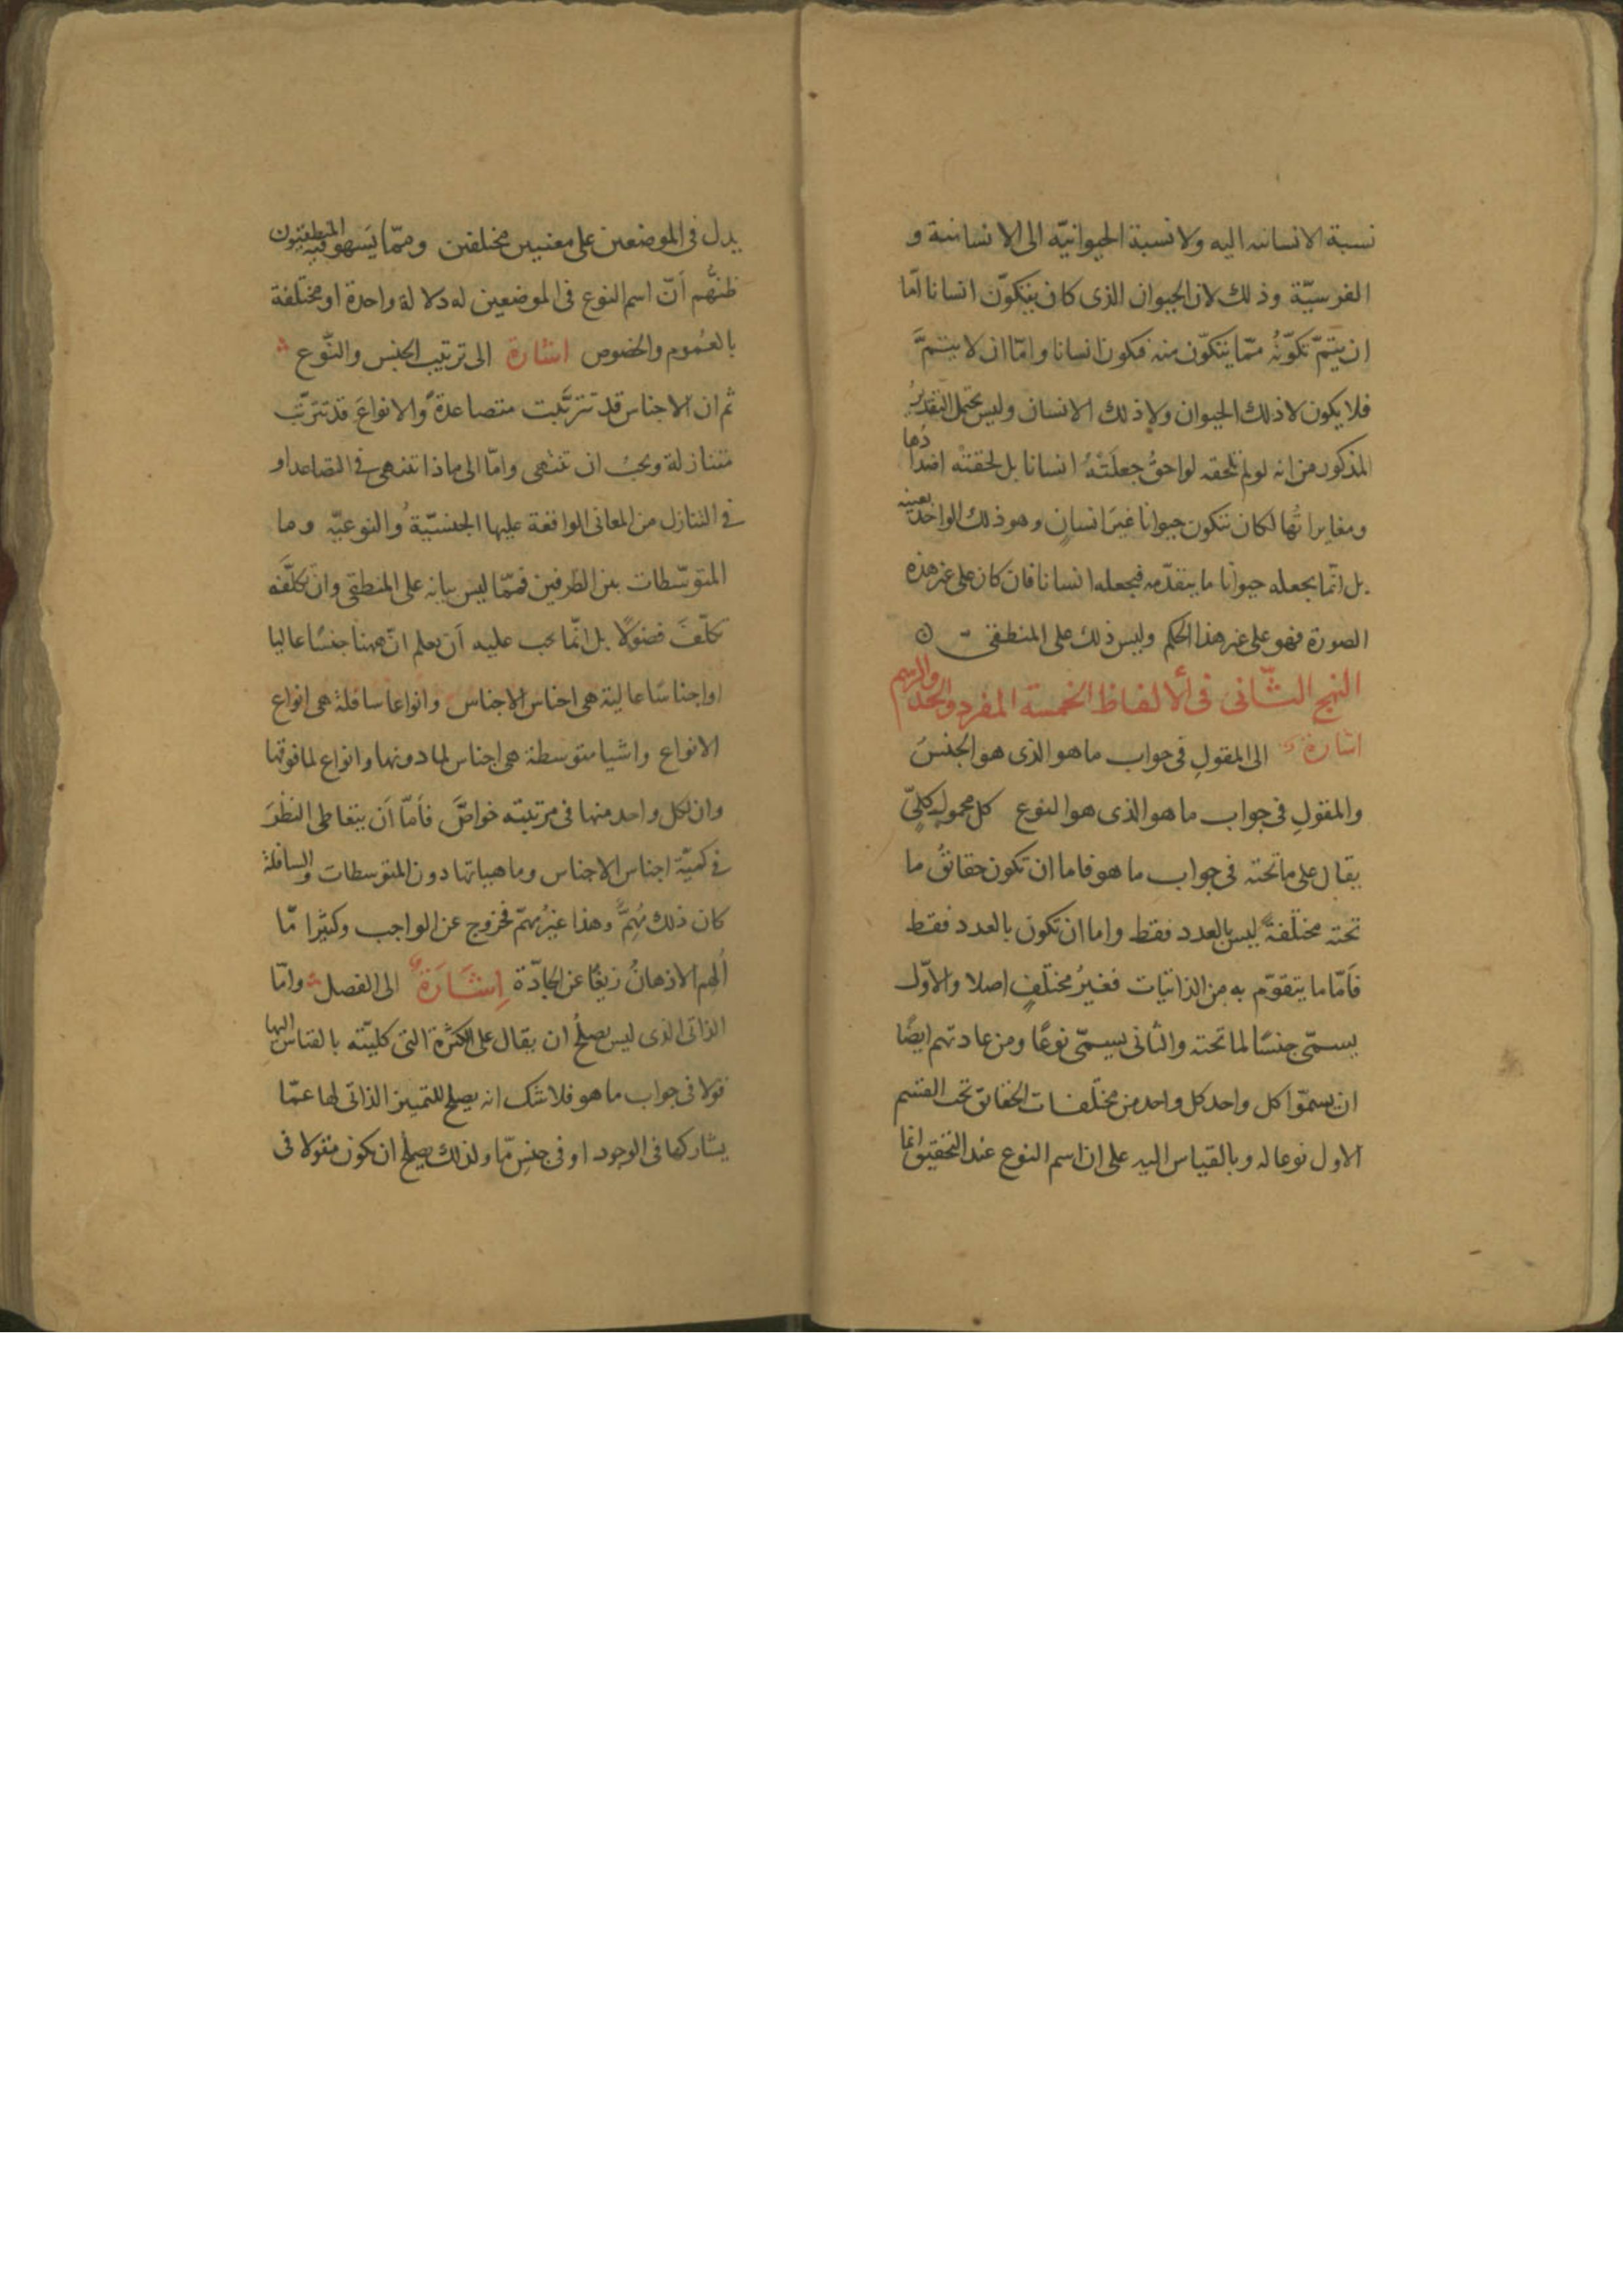 نسبة الانسانيه اليه ولا نسبة الحيوانيّه الى الانسانية و
الفرسيّة وذلك لان الحيوان الذى كان يتكوّن انسانا امّا
ان يتمّ تكوّنُهُ ممّا يتكوّن منه فيكون انسانا وامّا ان لا يتمَّ
فلا يكون لا ذلك الحيوان ولا ذلك الانسان وليس يحتمل التقديرُ
المذكور من انه لو لم تلحقه لواحقُ جعلَتْهُ انسانا بل لحقته اضدادُها
ومغايراتُها لكان يتكون حيوانا غيرَ انسانٍ وهو ذلك الواحد بعينه
بل انّما يجعله حيوانا ما يتقدّمه فيجعله انسانا فان كان على غير هذه
الصورة فهو على غير هذا الحكم وليس ذلك على المنطقى
النهج الثّانى فى ألالفاظ الخمسة المفرد والحد والرسم
اشارة الى المقولِ فى جواب ما هو الذى هو الجنسُ
والمقولِ فى جواب ما هو الذى هو النوع كل محمولٍ كلىّ
يقال على ما تحته فى جواب ما هو فاما ان تكون حقائقُ ما
تحته مختلفةً ليس بالعدد فقط واما ان تكون بالعدد فقط
فأمّا ما يتقوّم به من الذاتيّات فغيرُ مختلفٍ اصلا والاوّل
يسمّى جنسًا لما تحته والثانى يسمّى نوعًا ومن عادتهم ايضًا
ان يسمّوا كل واحد كل واحد من مختلفات الحقائق تحت القسم
الاول نوعا له وبالقياس اليه على ان اسم النوع عند التحقيق انما
يدل فى الموضعين على معنيين مختلفين وممّا يَسهو فيه المنطقيّون
ظنُّهم أنّ اسم النوع فى الموضعين له دلالة واحدة او مختلفة
بالعُموم والخصوص اشارة الى ترتيب الجنس والنّوع
ثم ان الاجناس قد تترتّبت متصاعدةً والانواعَ قد تترتّب
متنازلة ويجبُ ان تنتهى وامّا الى ماذا تنتهى فى التصاعد او
فى التنازل من المعانى الواقعة عليها الجنسيّة والنوعيّه وما
المتوسّطات بين الطرفين فممّا ليس بيانه على المنطقى وان تكلّفَه
تكلّفَ فضولًا بل انّما يجب عليه أن يعلم انّ ههنا جنسًا عاليا
اواجناسًا عالية هى اجناس الاجناس وانواعا سافلة هى انواع
الانواع واشيا متوسطة هى اجناس لما دونها وانواع لما فوقها
وان لكل واحد منها فى مرتبته خواصَّ فأمّا أن يتعاطى النظرَ
فى كميّة اجناس الاجناس وماهياتها دون المتوسطات والسافلة
كان ذلك مُهِمٌّ وهذا غيرُ مهمّ فخروج عن الواجب وكثيرًا مّا
ألهم الاذهانُ زيغًا عن الجادّة اِشَارَةٌ الى الفصل وامّا
الذاتى الذى ليس يصلحُ ان يقال على الكثرة التى كليّته بالقياس اليها
قولا فى جواب ما هو فلا شك انه يصلح للتمييز الذاتى لها عمّا
يشاركها فى الوجود او فى جنسٍ مّا ولذلك يصلح ان يكون مقولا فى